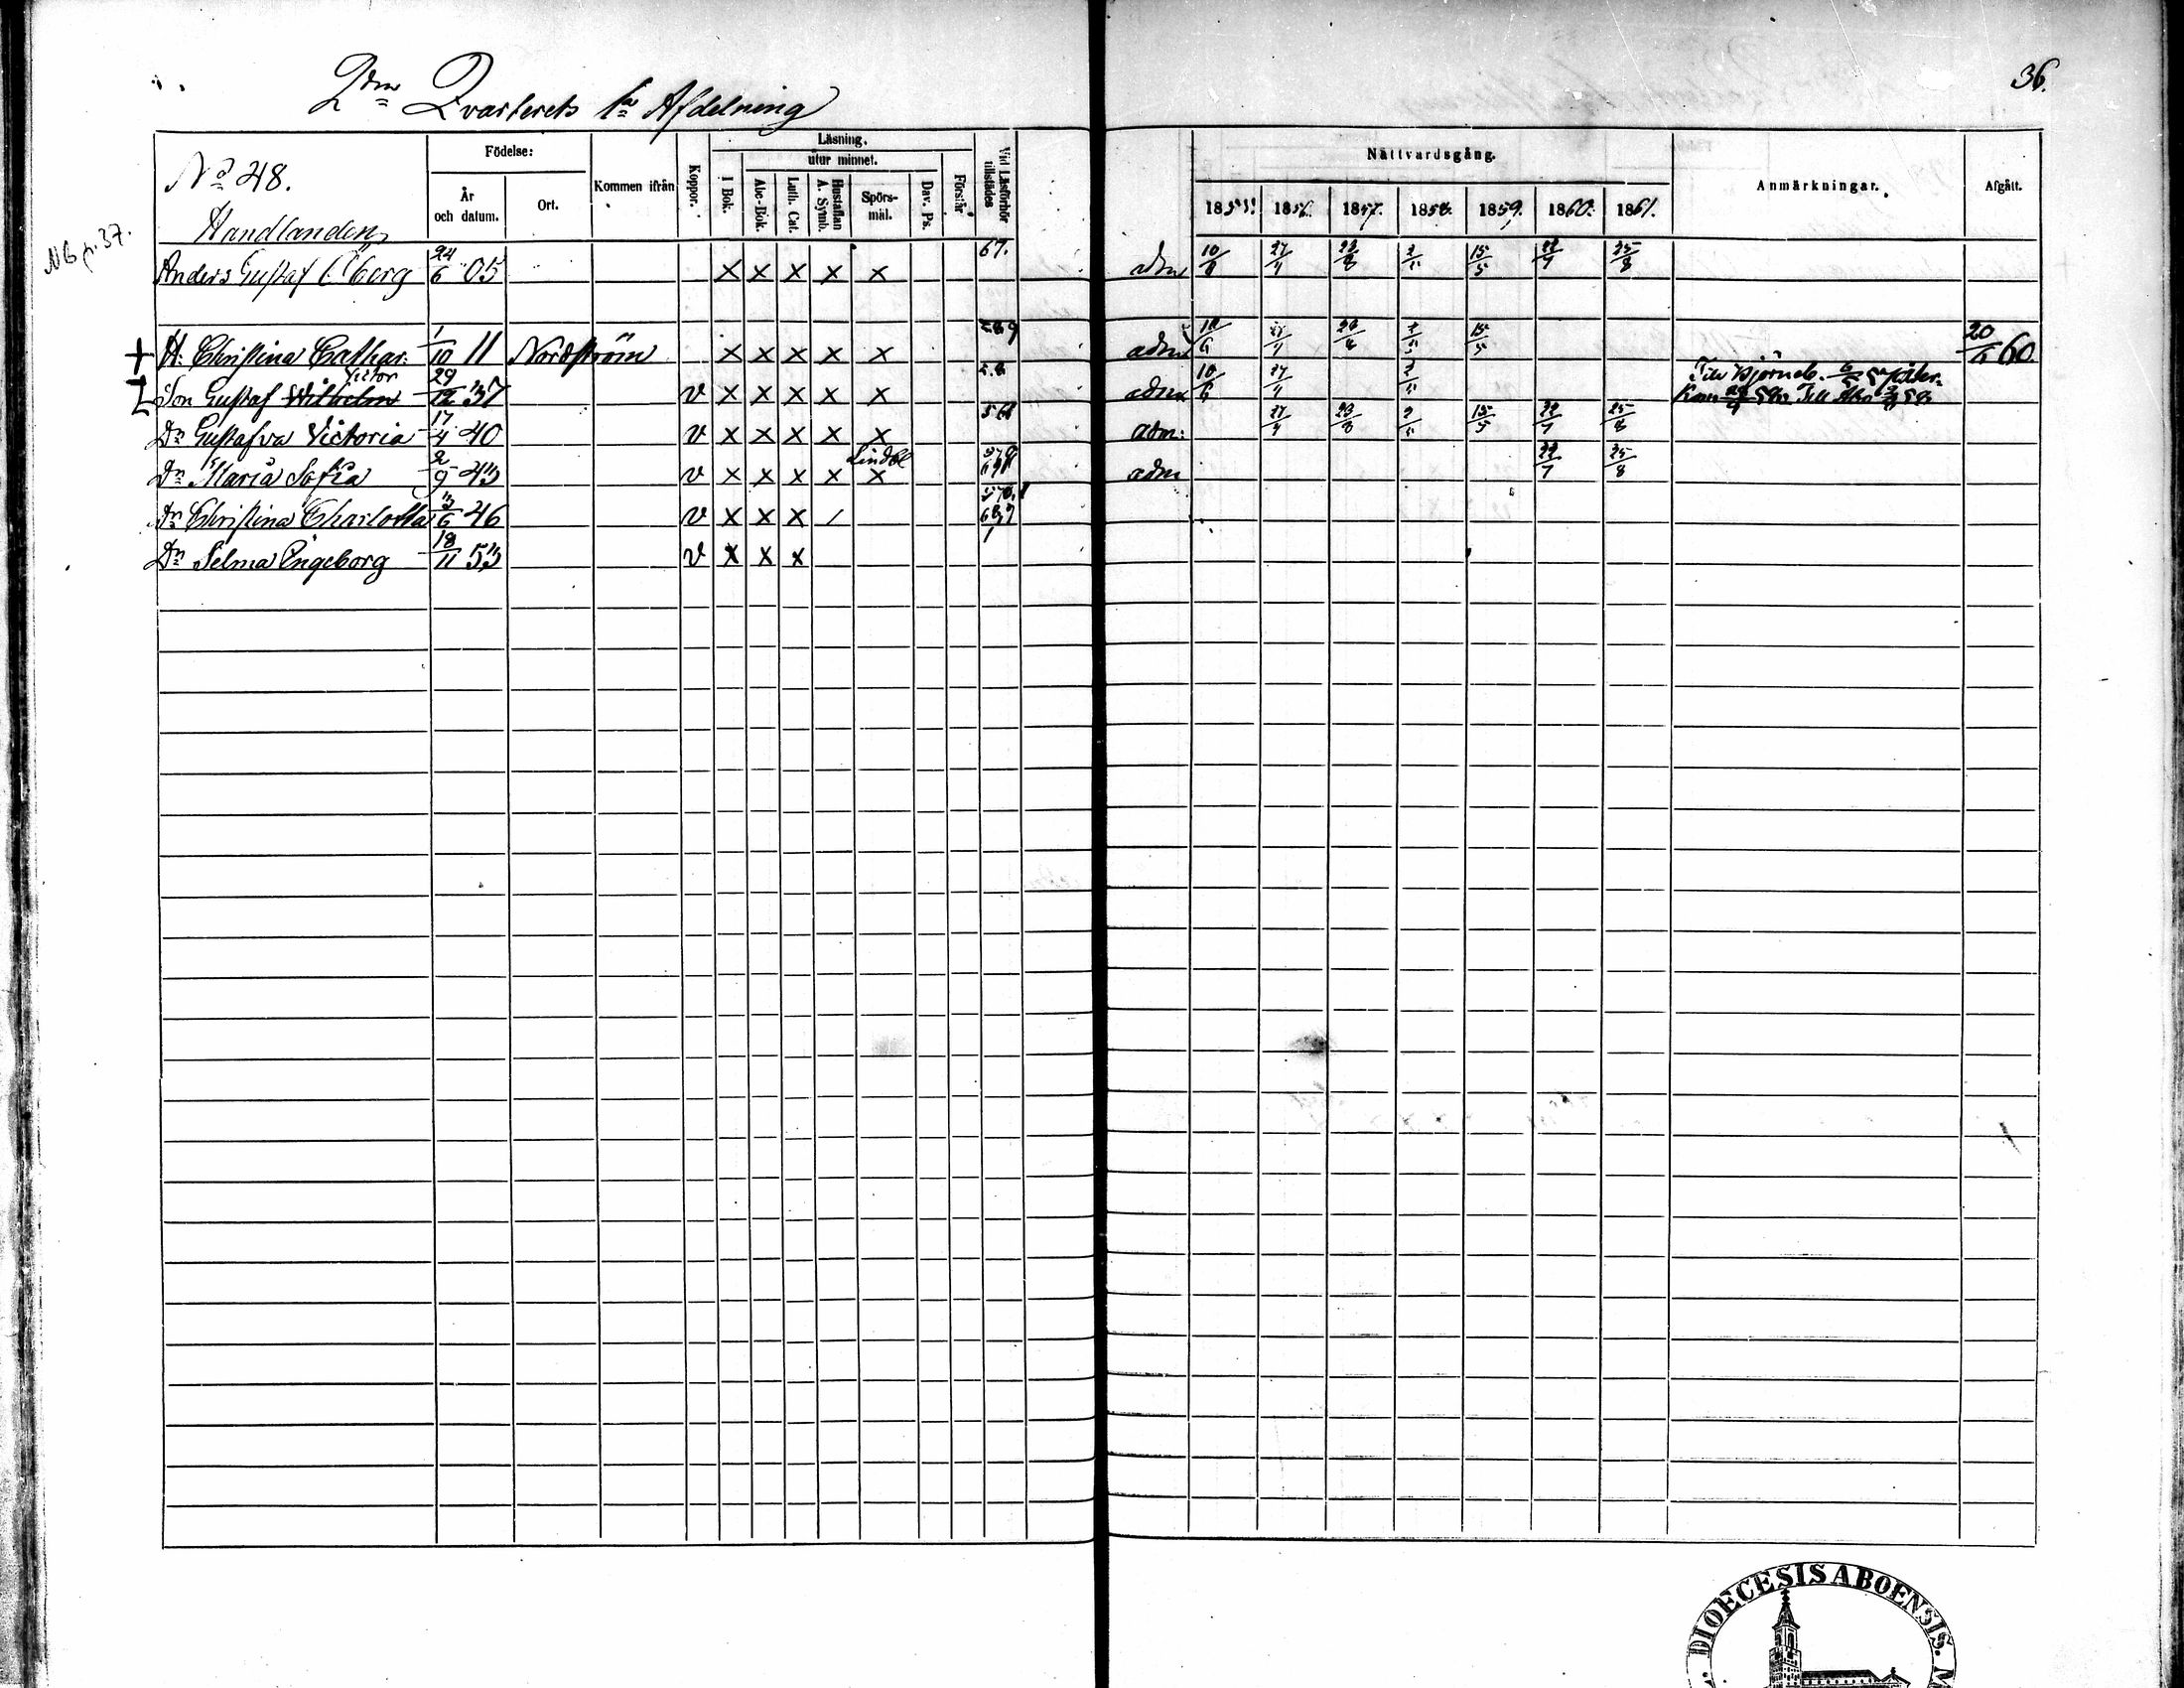 2dra Qvarterets 1a Afdelning
36.
No 48.
Handlanden
NB p. 37.
Födelse:
År och datum.
Ort.
Kommen ifrån
Koppor.
Läsning.
utur minnet.
I Bok.
Abc-Bok.
Luth. Cat.
Hustaflan A. Symb.
Spörs-mål.
Dav. Ps.
Förstår
Vid Läsförhör tillstädes
Nattvardsgång.
1855. 1856. 1857. 1858. 1859. 1860. 1861.
Anmärkningar.
Afgått.
Anders Gustaf Öberg 24/6 05 x x x x x 67. adm 10/6 27/4 23/8 2/5 15/5 22/7 25/8
+ H. Christina Cathar. 1/10 11 Nordström x x x x x adm 10/6 27/4 23/8 2/5 15/5 20/4 60.
Victor
Son Gustaf Wilhelm 29/12 37 v x x x x x adm 10/6 27/4 2/5 Till Björneb.
Dr Gustafva Victoria 17/4 40 v x x x x x 56 adm: 27/4 23/8 2/5 15/5 22/7 25/8
Dr Maria Sofia 2/9 43 v x x x x Lindbl x adm 22/7 25/8
Dr Christina Charlotta 3/6 46 v x x x /
Dr Selma Engeborg 18/11 53 v x x x
DIOECESIS ABOENSIS. M